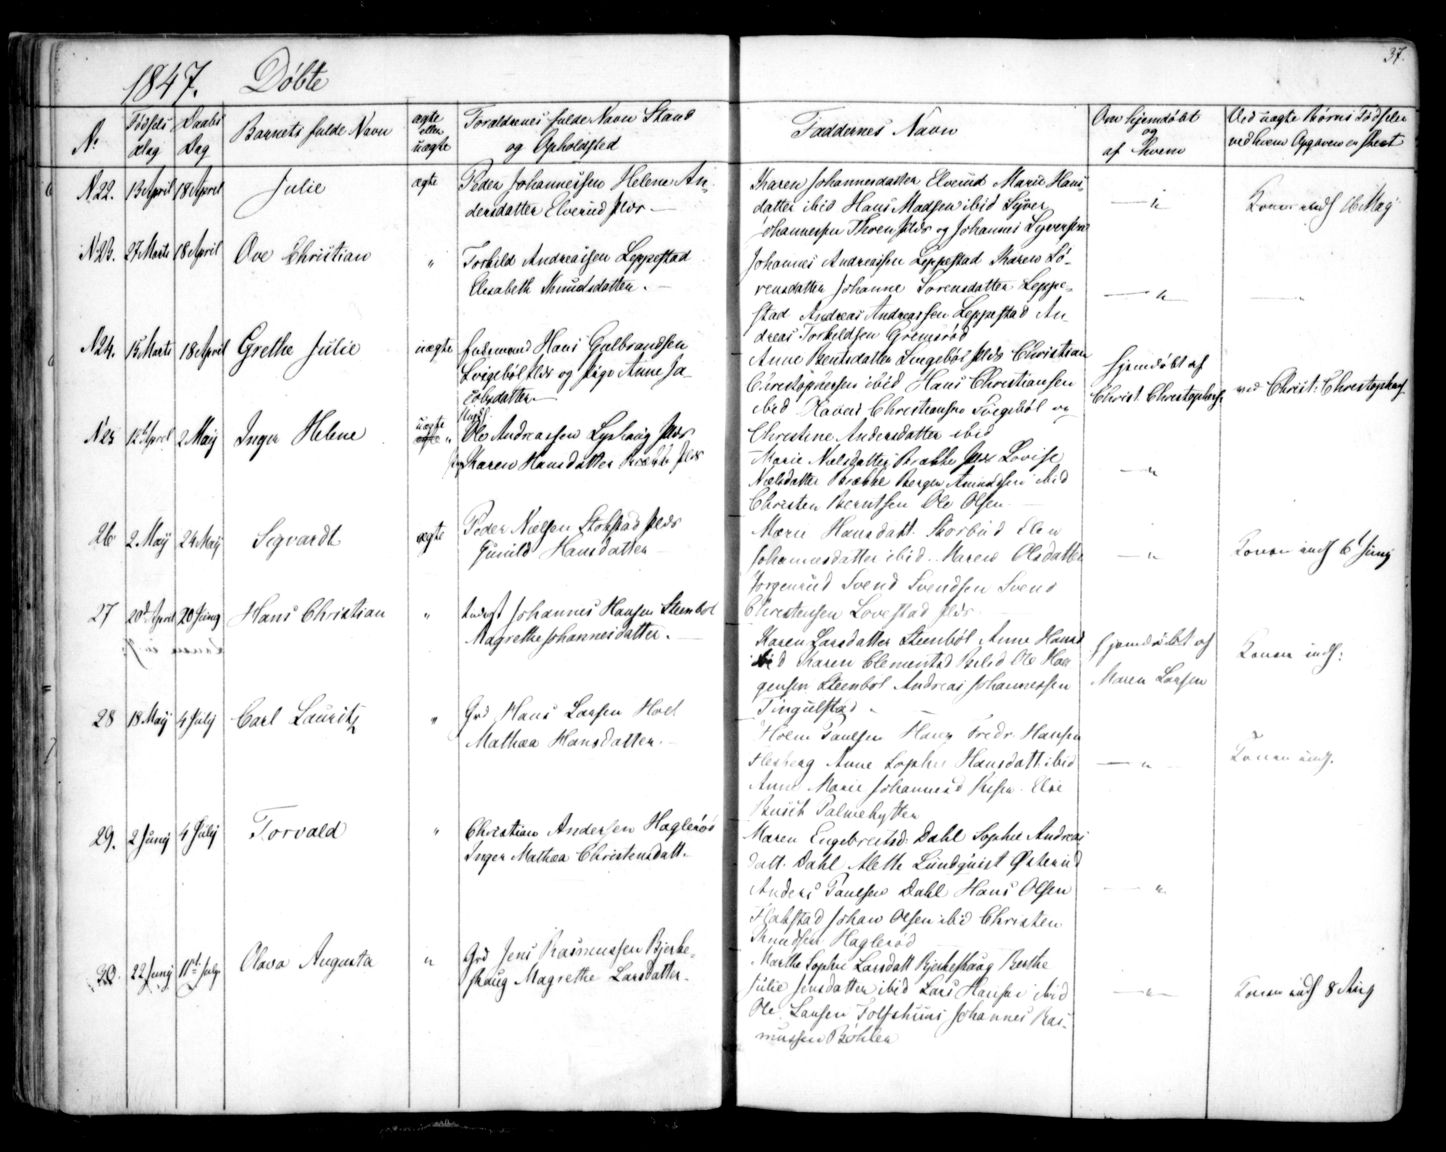 37.
1847. Döbte
No
Födsels Dag
Daabs Dag
Barnets fulde Navn
ægte eller uægte
Foreldrenes fulde Navn Stand
og Opholdsted
Faddernes Navn
Om hjemdöbt
og
af Hvem
Ved uægte Börns Födseler
ved hvem Opgaven er skeet
N22. 13 April 18 April Julie ægte
Peder Johannessen Helene An-
dersdatter Elverud
Karen Johannesdatter Elverud Marie Hans-
datter ibid Hans Madsen ibid Syver
Johannesen og Johannes Syversen
Konen indl 16 Maÿ
N23. 27 Marts 18 April Ove Christian "
Torkild Andreassen Leppestad
Elisabeth Knudsdatter.
Johannes Andreassen Leppestad Karen Sö-
rensdatter Johanne Sörensdatter Leppe-
stad Andreas Andreassen Leppestad An-
dreas Torkildsen Grimsröd
N24. 15 Marts 18 April Grethe Julie uægte
Hans Gulbrandsen
og Pige Anne Ja-
cobsdatter
Anne Berntsdatter Christian
Christophersen ibid Hans Christiansen
ibid Christiansen og
Christine Andersdatter ibid
hjemdöbt af
Christ. Christophers.
ved Christ: Christophers
N25 12 April 2 Maÿ Inger Helene uægte
Ungk
Ole Andreassen
Pig Karen Hansdatter Brække
Marie Nielsdatter Brække Lovise
Nielsdatter Brække Berger Amundsen ibid
Christen Berntsen Ole Olsen
26 2 Maÿ 24 Maÿ Segvardt ægte
Peder Nielsen Stokstad
Gunild Hansdatter
Maren Hansdatt. Elen
Johannesdatter ibid Maren Olsdatter
Jorgenrud Svend Svendsen Svend
Christensen Lovestad
Konen indl 6t Junÿ
27 20de April 20 Juny Hans Christian "
Indst Johannes Hansen Steenböl
Magrethe Johannesdatter.
Karen Larsdatter Steenböl Anne Hansd
ibid Karen Clementsd Ole Han
sen Steenböl Andreas Johannessen
Tingulstad
hjemdöbt af
Maren Larsen
Konen indl:
28 18 Maÿ 4 Julÿ Carl Lauritz "
Grd Hans Larsen Hoel
Mathea Hansdatter.
Paulsen Hans Fredr. Hansen
Anne Sophie Hansdatt. ibid
Anne Marie Johannesd Else
Konen indl.
29. 2 Junÿ 4 Julÿ Torvald "
Christian Andersen Hagleröd
Inger Mathea Christensdatt.
Maren Engebretsd. Dahl Sophie Andreas
datt. Dahl Alette Lundquist Österud
Anders Paulsen Dahl Hans Olsen
Johan Olsen ibid Christen
Knudsen Hagleröd
30. 22 Junÿ 11te July Olava Augusta "
Grd Jens Rasmussen Bjerke-
skaug Magrethe Larsdatter.
Marthe Sophie Larsdatt Bjerkeskaug Berthe
Julie Jensdatter ibid Lars Hansen ibid
Ole Larsen Johannes Ras-
mussen Böhler
Konen indl 8 Aug